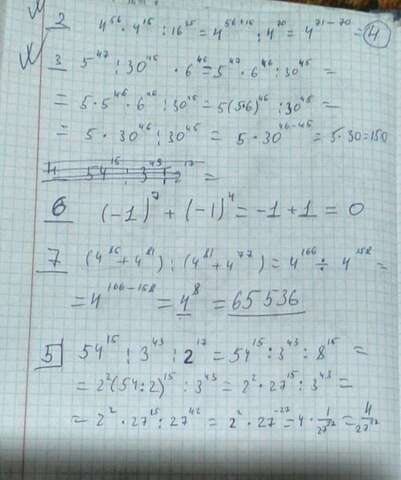 2 4^56 · 4^15 : 16^35 = 4^56+15 : 4^70 = 4^71-70 = 4
3 5^47 : 30^45 · 6^46 = 5^47 · 6^46 : 30^45 =
= 5 · 5^46 · 6^46 : 30^45 = 5(5·6)^46 : 30^45 =
= 5 · 30^46 : 30^45 = 5 · 30^46-45 = 5·30=150
6 (-1)^7 + (-1)^4 = -1 + 1 = 0
7 (4^85 + 4^81) : (4^81 + 4^77) = 4^166 ÷ 4^158 =
= 4^166-158 = 4^8 = 65 536
5 54^15 : 3^43 : 2^17 = 54^15 : 3^43 : 8^15 =
= 2^2 (54:2)^15 : 3^43 = 2^2 · 27^15 : 3^43 =
= 2^2 · 27^15 : 27^42 = 2^2 · 27^-27 = 4 · =